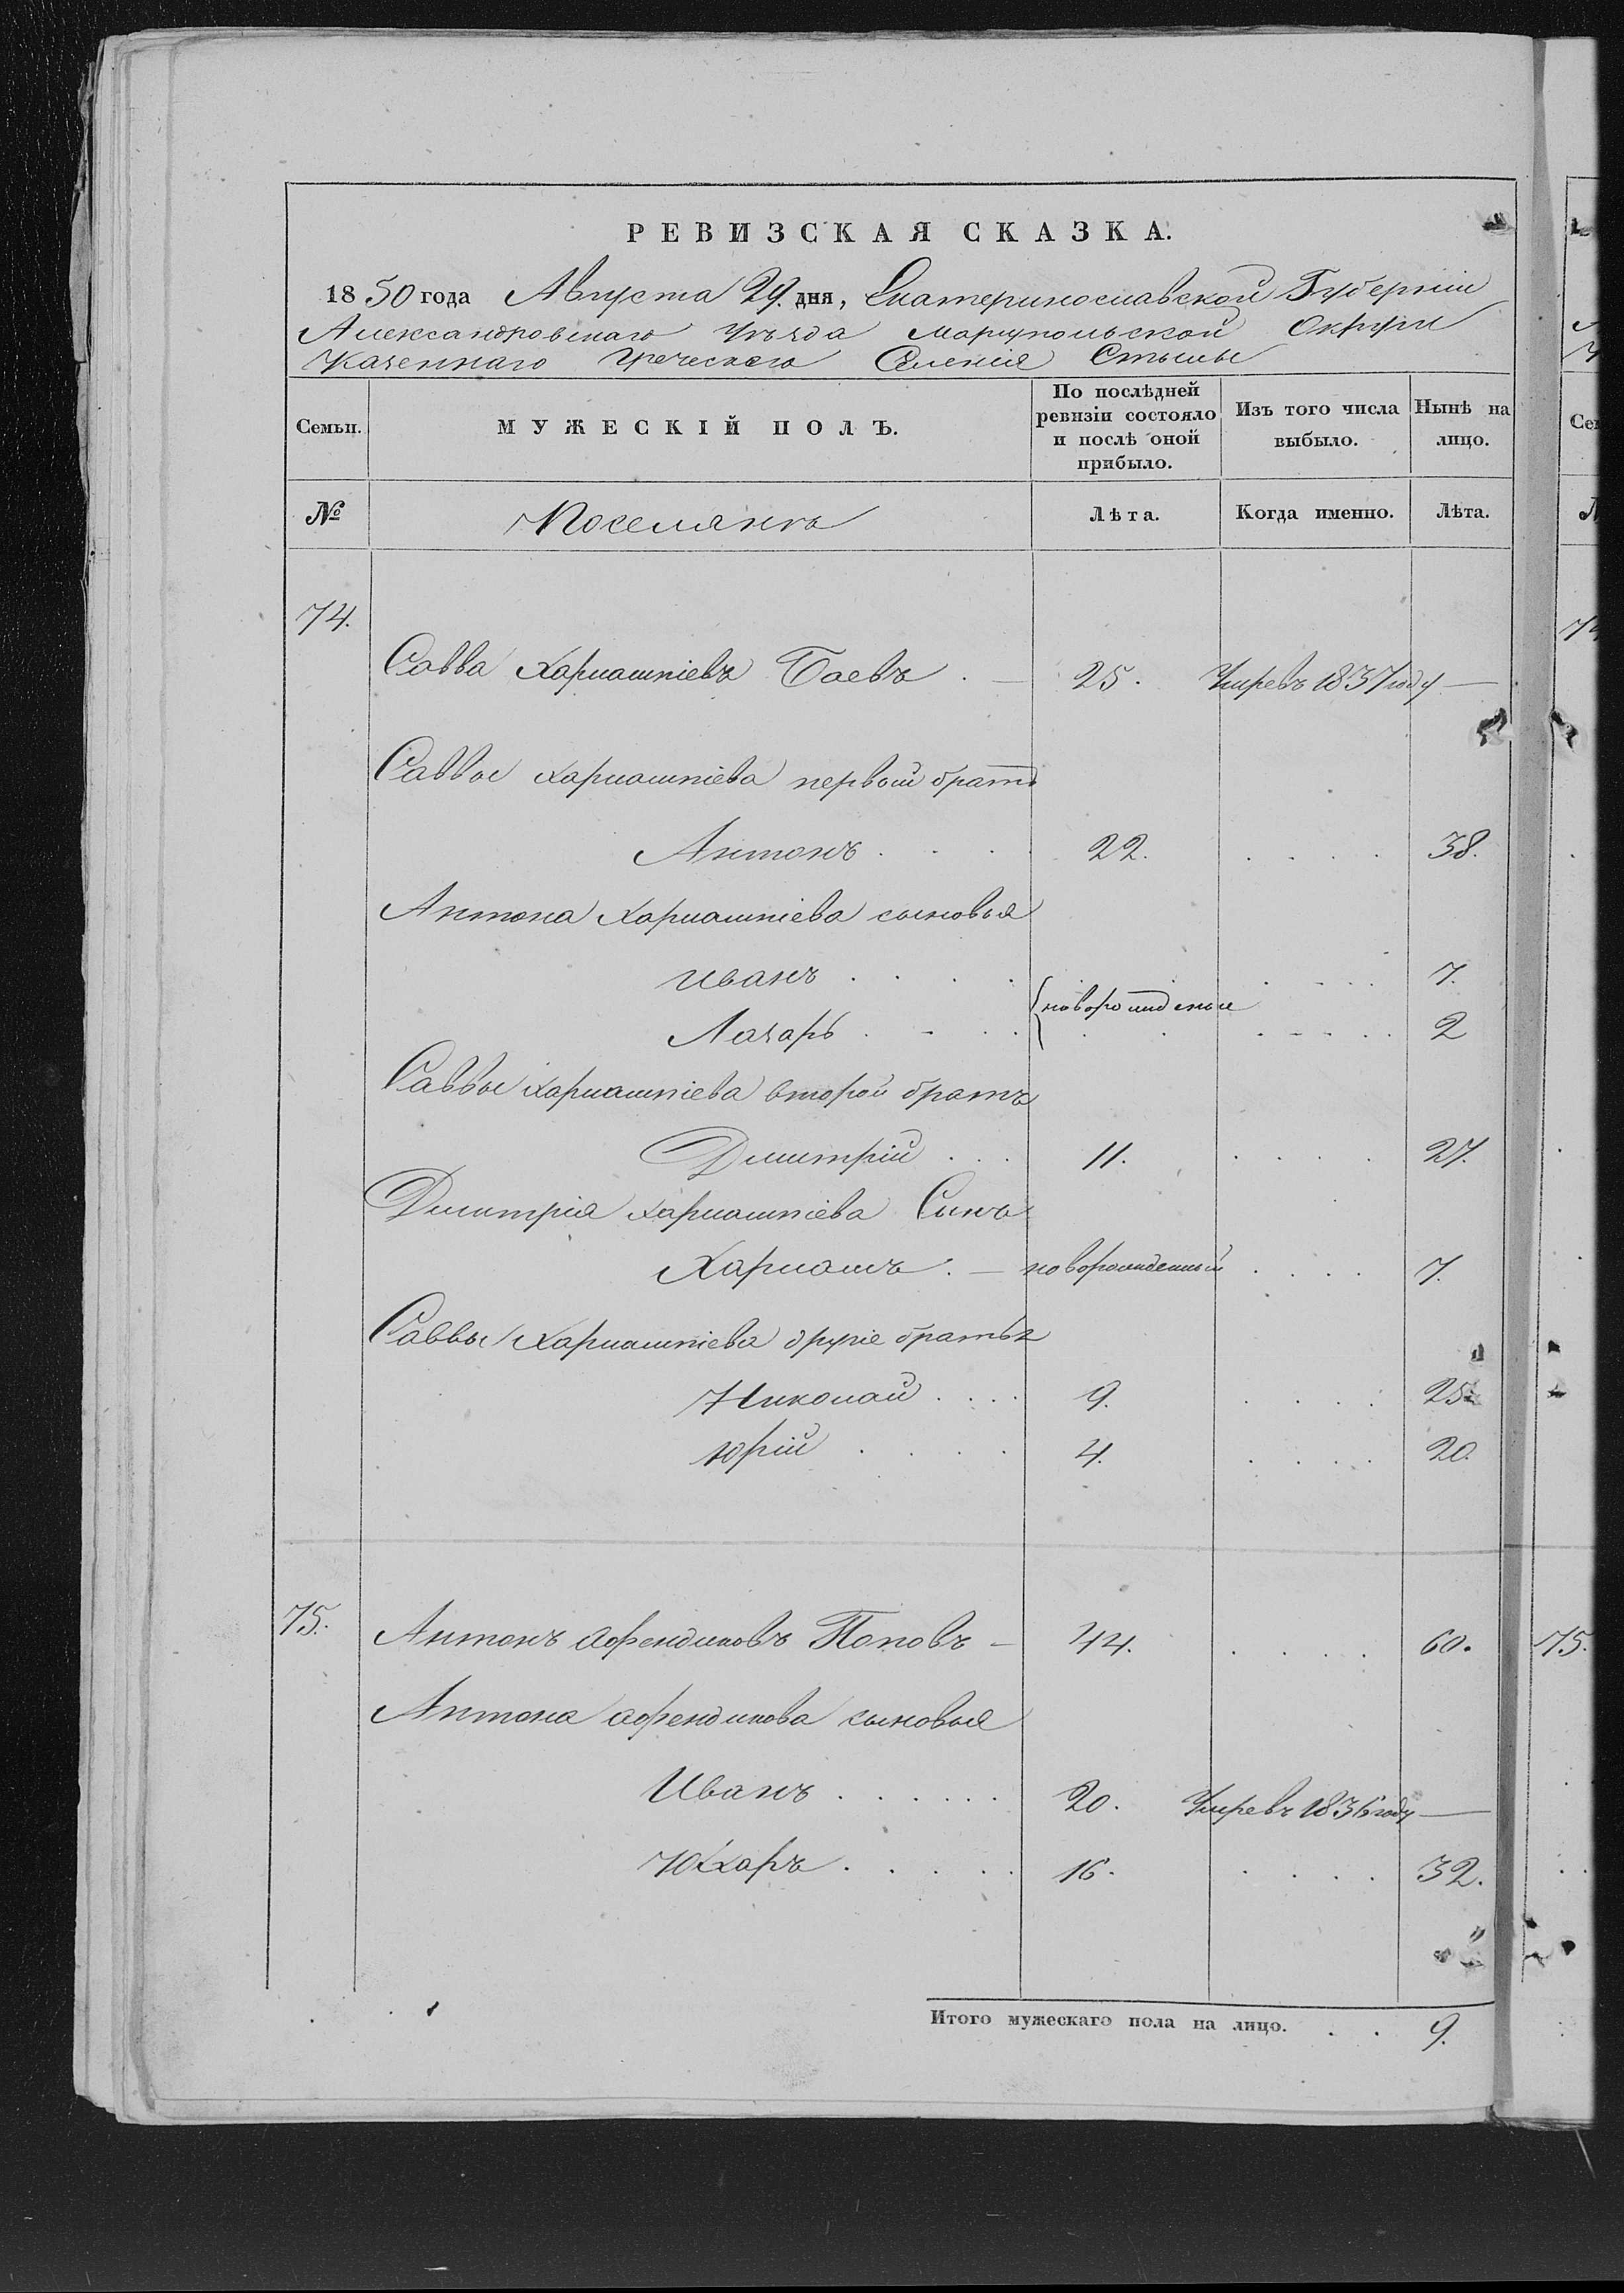 РЕВИЗСКАЯ СКАЗКА.
1850 года Августа 29. дня, Екатеринославской Губерніи
Александровскаго Уѣзда Маріупольской Округи
Казеннаго Греческаго Селенія Стылы
Семьи. МУЖЕСКІЙ ПОЛЪ. По послѣдней ревизіи состояло и послѣ оной прибыло. Изъ того числа выбыло. Нынѣ на лицо.
№ Поселянъ Лѣта. Когда именно. Лѣта.
74.
Савва Харлампіевъ Баевъ . — 25. Умревъ 1837 году —
Саввы Харлампіева первый братъ
Антонъ . . . . 22. . . . . 38.
Антона Харлампіева сыновья
Иванъ . . . . . . . . . 7.
{новорожденые
Лазарь . . . . . . . . . 2
Саввы Харлампіева второй братъ
Дмитрій . . . 11. . . . . 27.
Дмитрія Харлампіева Сынъ
Харлампъ . — новорожденный . . . . 7.
Саввы Харлампіева другіе братья
Николай . . . . 9. . . . . 25.
Юрій . . . . 4. . . . . 20.
75. Антонъ Афендиковъ Поповъ — 44. . . . . 60.
Антона Афендикова сыновья
Иванъ . . . . . . 20. Умревъ 1836 году —
Захаръ . . . . . 16. . . . . 32.
Итого мужескаго пола на лицо. . . 9.
75.